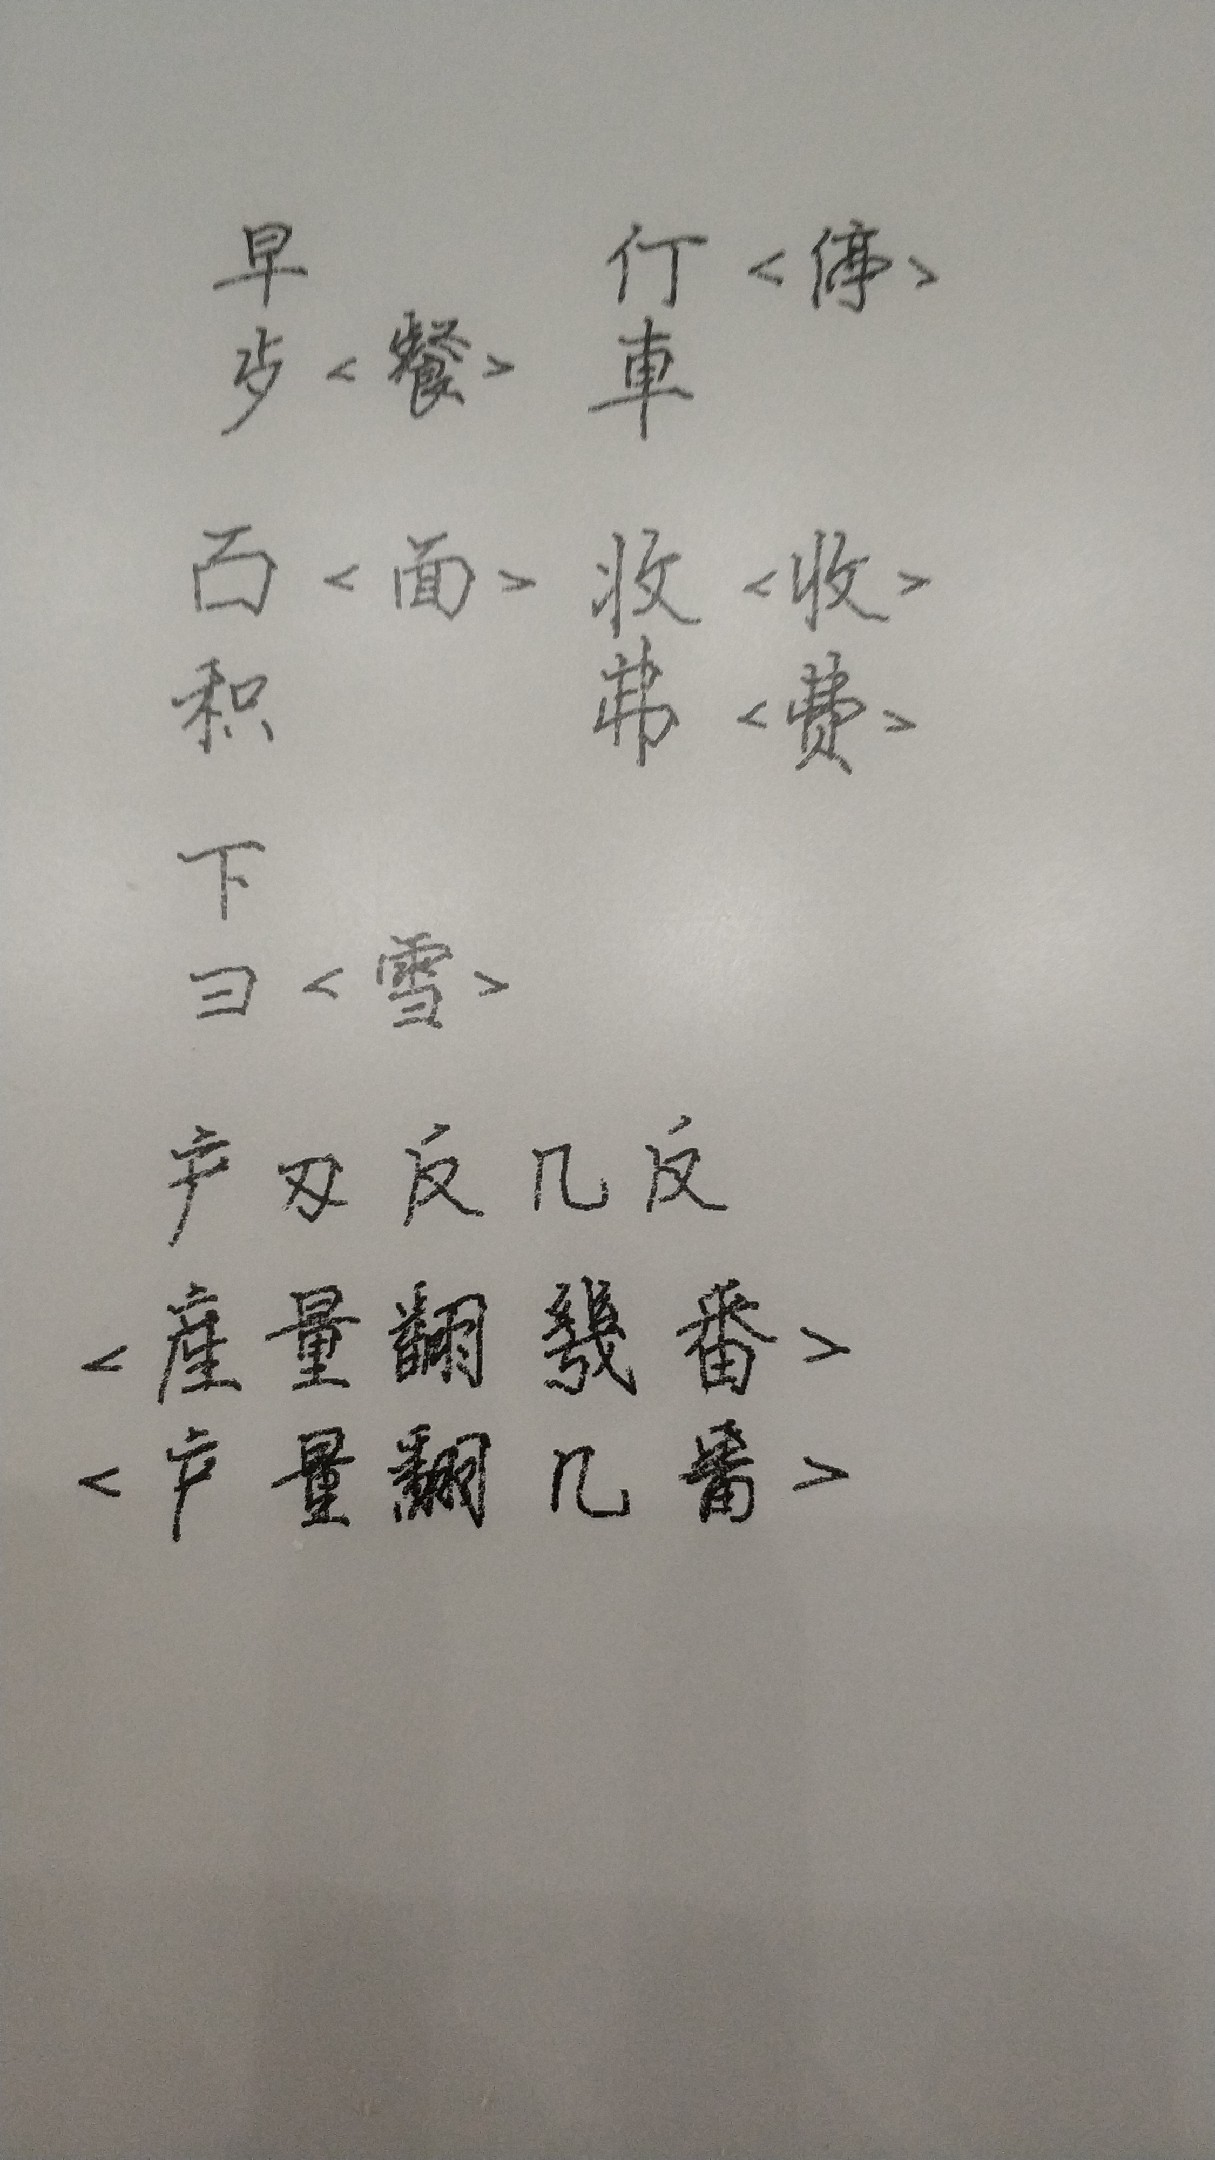 早 仃<停>
歺<餐> 車
面<面> 收<收>
积 弗<费>
下
彐<雪>
产刄反几反
<産量翻幾番>
<产量翻几番>